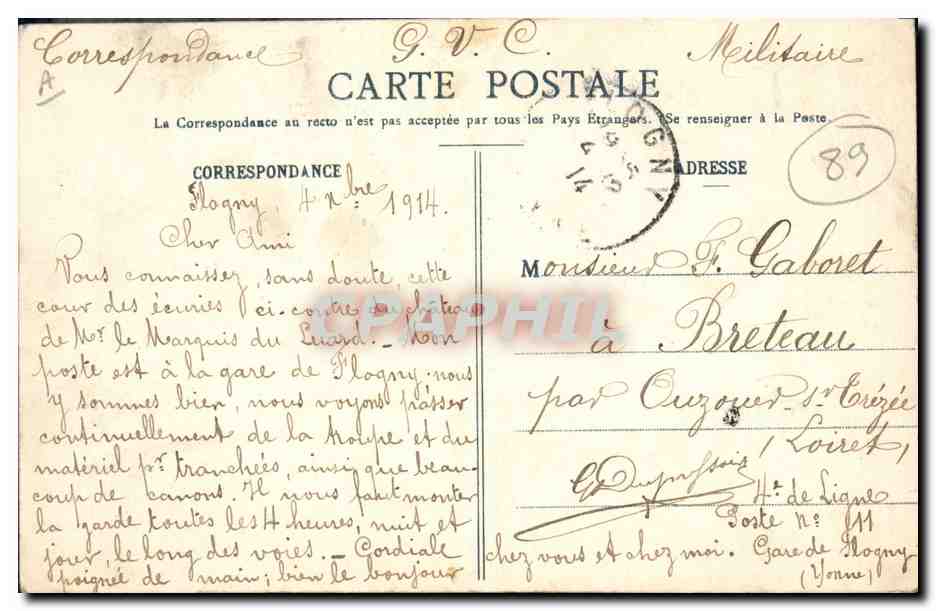 Correspondance G. V. C. Militaire
A
CARTE POSTALE
La Correspondance au recto n'est pas acceptée par tous les Pays Etrangers. (Se renseigner à la Poste.
CORRESPONDANCE
ADRESSE
89
FLOGNY
14
Flogny, 4 Xbre 1914.
Cher Ami
Vous connaissez, sans doute, cette
cour des écuries ci-contre au château
de Mr le Marquis du Luard. - Mon
poste est à la gare de Flogny; nous
y sommes bien, nous voyons passer
continuellement de la troupe et du
matériel pr tranchées, ainsi que beau-
coup de canons. Il nous faut monter
la garde toutes les 4 heures, nuit et
jour, le long des voies. - Cordiale
poignée de main; bien le bonjour
chez vous et chez moi.
Monsieur F. Gaboret
à Breteau
par Ouzouer-sr-Trézée
(Loiret)
4e de Ligne
Poste No 111
Gare de Flogny
(Yonne)
CPAPHIL